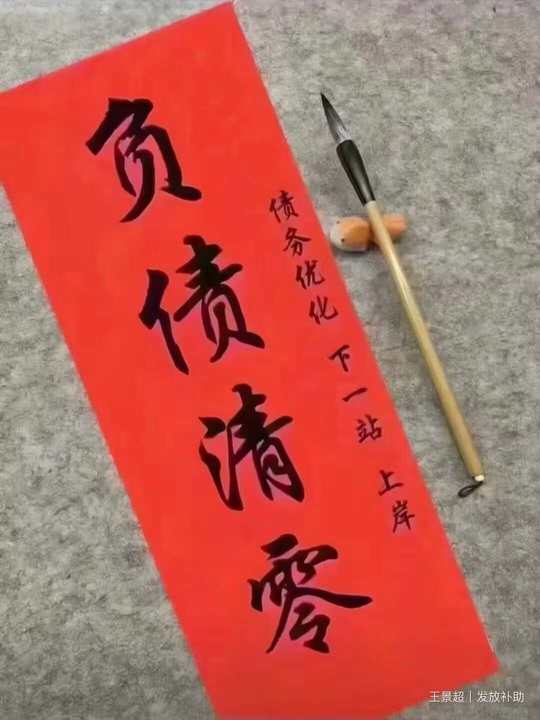 负债清零
债务优化 下一站 上岸
王景超｜发放补助